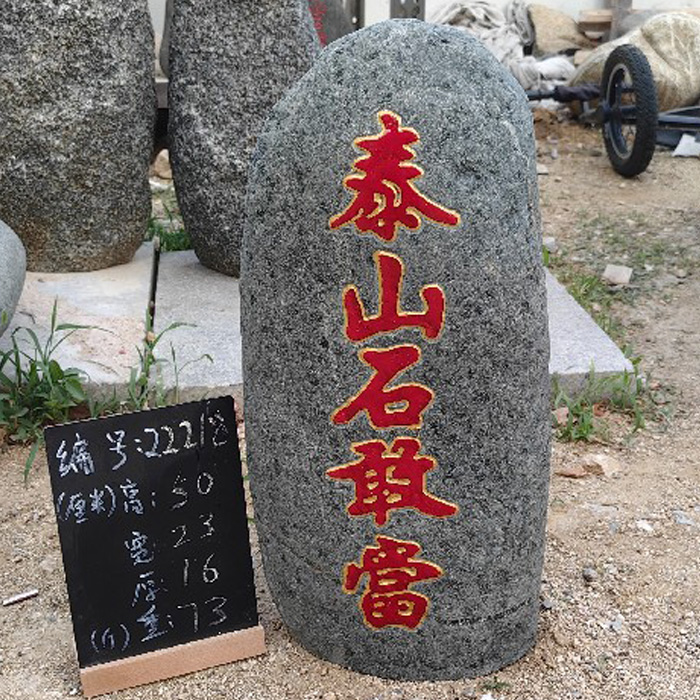 泰山石敢當
编号:22218
(厘米)高:50
宽23
厚16
(斤)重:73